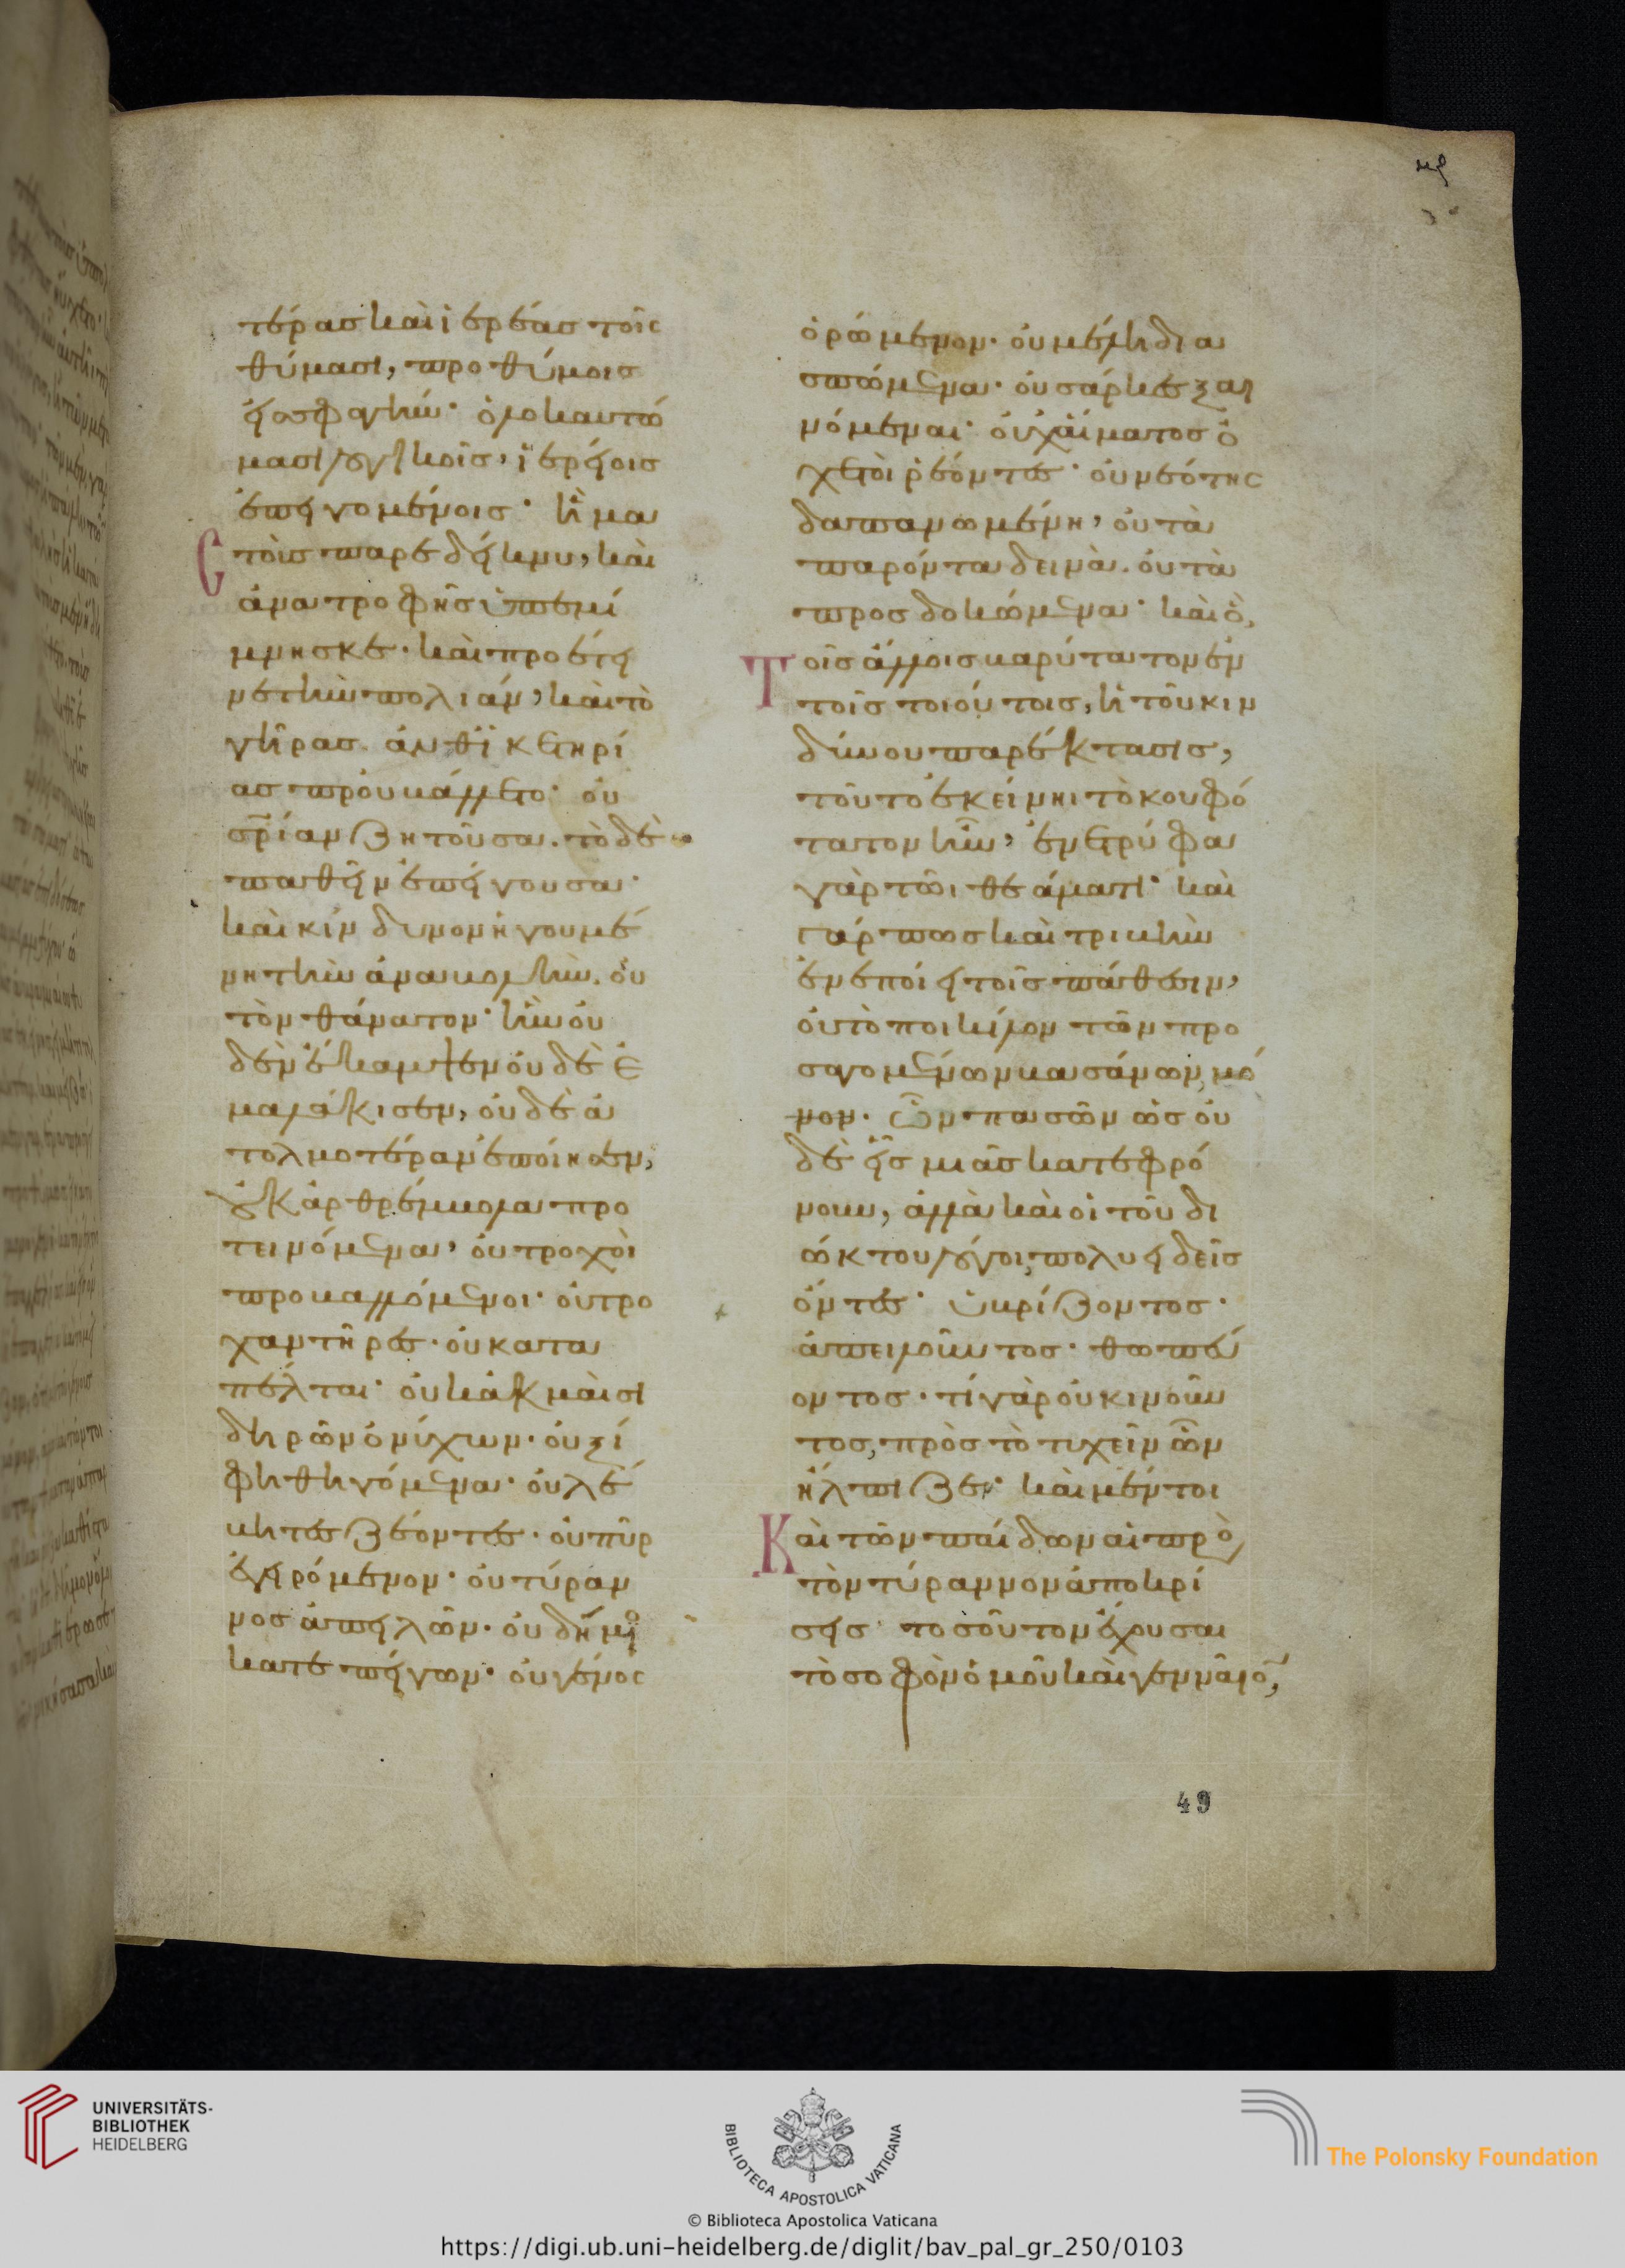 τέρας καὶ ἱερέας τοῖς
θύμασι, προθύμοις
εἰς σφαγὴν· ὁλοκαυτώ
μασι λογικοῖς, ἱερείοις
ἐπειγομένοις· ἡ μα
στοὺς παρεδείκνυ, καὶ
ἀνατροφῆς ὑπεμί
μνησκε· καὶ προετεί
νε τὴν πολιάν, καὶ τὸ
γῆρας ἀνθ' ἱκετηρί
ας προὐβάλλετο· οὐ
σρίαν ζητοῦσα· τὸ δὲ
παθεῖν ἐπείγουσα·
καὶ κίνδυνον ἡγουμέ
νη τὴν ἀναβολὴν, οὐ
τὸν θάνατον· ἣν οὐ
δὲν ἔκαμψεν οὐδὲ ἐ
μαλάκισεν, οὐδὲ ἀ
τολμοτέραν ἐποίησεν,
οὐκ ἀρθρέμβολα προ
τεινόμενα, οὐ τροχοὶ
προβαλλόμενοι· οὐ τρο
χαντῆρες· οὐ κατα
πέλται· οὐκ ἀκμαὶ σι
δηρῶν ὀνύχων· οὐ ξί
φη θηγόμενα· οὐ λέ
βητες ζέοντες· οὐ πῦρ
ἐγειρόμενον· οὐ τύραν
νος ἀπειλῶν· οὐ δήμιος
κατεπείγων· οὐ γένος
ὁρώμενον· οὐ μέλη δια
σπώμενα· οὐ σάρκες ξαι
νόμεναι· οὐχ αἵματος ὀ
χετοὶ ῥέοντες· οὐ νεότης
δαπανωμένη, οὐ τὰ
παρόντα δεινὰ· οὐ τὰ
προσδοκώμενα· καὶ ὃ,
Τοῖς ἄλλοις βαρύτατον ἐν
τοῖς τοιούτοις, ἡ τοῦ κιν
δύνου παρέκτασις,
τοῦτο ἐκείνηι τὸ κουφό
τατον ἦν, ἐνετρύφα
γὰρ τῶι θεάματι· καὶ
γάρ πως καὶ τριβὴν
ἐνεποίει τοῖς πάθεσιν,
οὐ τὸ ποικίλον τῶν προ
σαγομένων βασάνων μό
νον· ὧν πασῶν ὡς οὐ
δὲ εἷς μιᾶς κατεφρό
νουν, ἀλλὰ καὶ οἱ τοῦ δι
ώκτου λόγοι, πολυειδεῖς
ὄντες· ὑβρίζοντος·
ἀπειλοῦντος· θωπεύ
οντος· τί γὰρ οὐ κινοῦν
τος, πρὸς τὸ τυχεῖν ὧν
ἤλπιζε· καὶ μέντοι
Καὶ τῶν παίδων αἱ πρὸς
τὸν τύραννον ἀποκρί
σεις τοσοῦτον ἔχουσαι
τὸ σοφὸν ὁμοῦ καὶ γενναῖον,
49
UNIVERSITÄTS-
BIBLIOTHEK
HEIDELBERG
BIBLIOTECA APOSTOLICA VATICANA
The Polonsky Foundation
© Biblioteca Apostolica Vaticana
https://digi.ub.uni-heidelberg.de/diglit/bav_pal_gr_250/0103